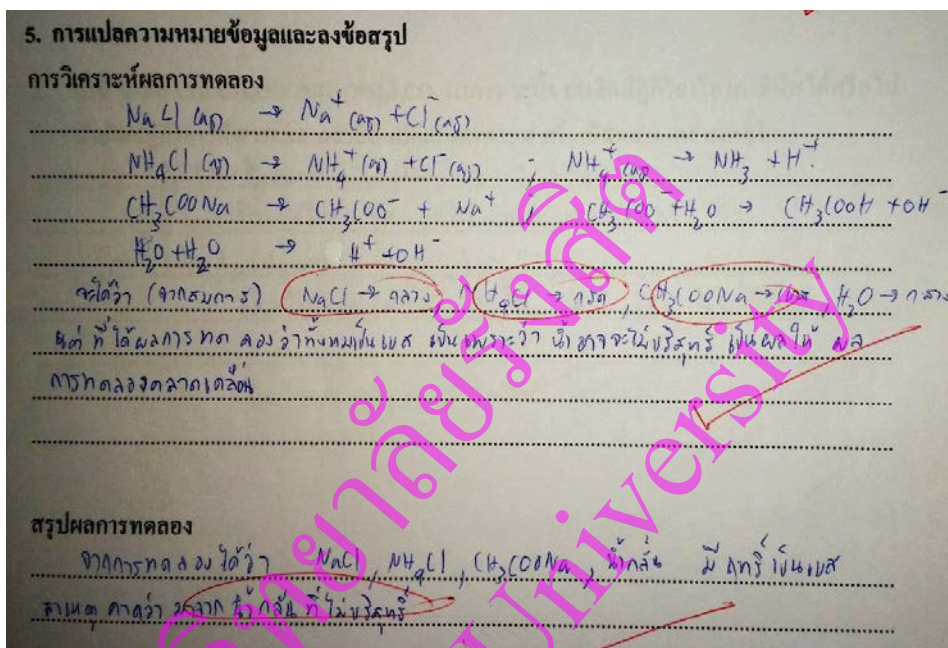 5. การแปลความหมายข้อมูลและลงข้อสรุป
การวิเคราะห์ผลการทดลอง
NaCl (aq) → Na⁺ (aq) + Cl⁻ (aq)
NH₄Cl (aq) → NH₄⁺ (aq) + Cl⁻ (aq) ; NH₄⁺ (aq) → NH₃ + H⁺
CH₃COONa → CH₃COO⁻ + Na⁺ ; CH₃COO⁻ + H₂O → CH₃COOH + OH⁻
H₂O + H₂O → H⁺ + OH⁻
จะได้ว่า (จากสมการ) NaCl → กลาง, NH₄Cl → กรด, CH₃COONa → เบส H₂O → กลาง
แต่ ที่ได้ผลการทดลองว่าทั้งหมดเป็นเบส เป็นเพราะว่า น้ำอาจจะไม่บริสุทธิ์ เป็นผลให้ ผล
การทดลองคลาดเคลื่อน
สรุปผลการทดลอง
จากการทดลองได้ว่า NaCl, NH₄Cl, CH₃COONa, น้ำกลั่น มีฤทธิ์เป็นเบส
สาเหตุ คาดว่า มาจาก น้ำกลั่นที่ไม่บริสุทธิ์
วิทยาลัยรังสิต
University